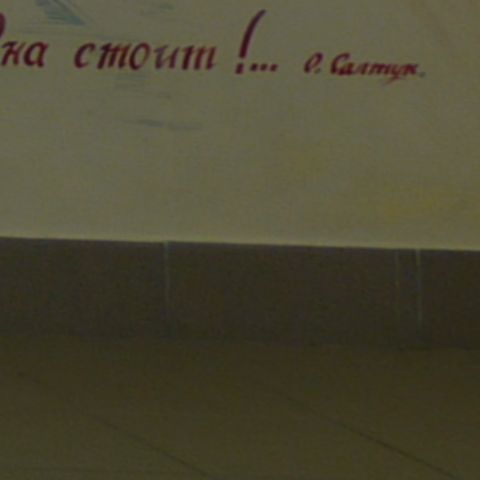 на стоит!... О. Салтук.